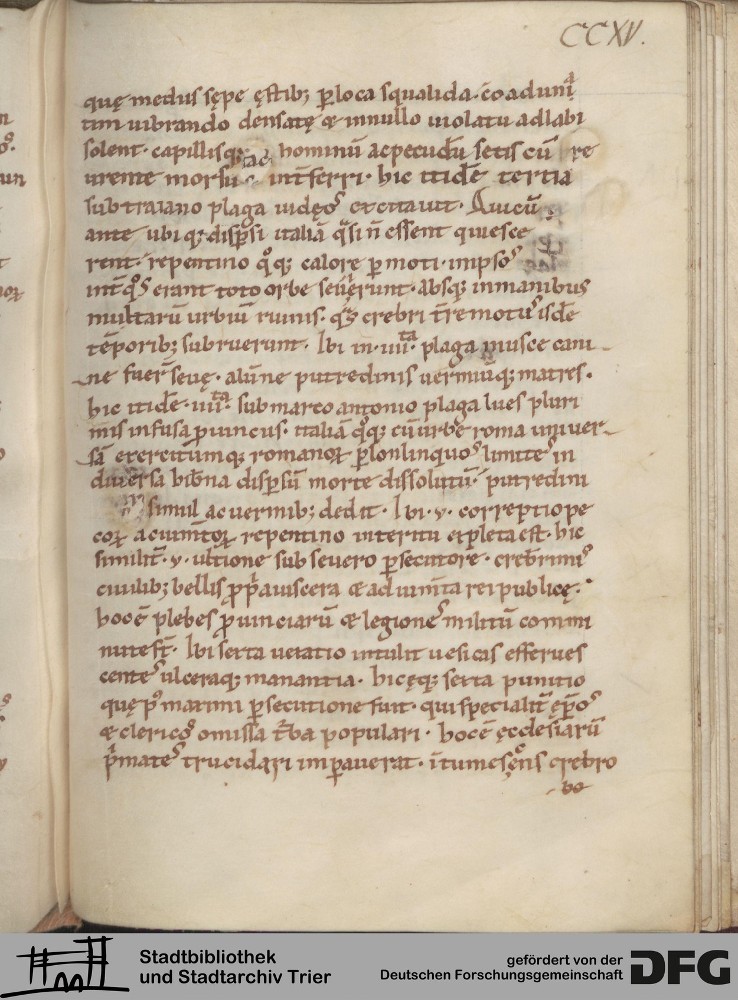 CCXV.
quę medus sępe ęstib; ploca squalida coaduni
tim uibrando densatę & innullo uiolatu adlabi
solent. capillisq; hominū ac pecudū setis cū re
urente morsu inferri. hic itidē tertia
subtraiano plaga iudęos excitauit. Quicū
ante ubiq; dispsi italiā q̄si n̄ essent quiesce
rent. repentino qͦq; calore pmoti. inipsos
int̄ qͦs erant toto orbe seuierunt. absq; inmanibus
multarū urbiū ruinis. q̄s crebri t̄remotus isdē
tēporib; subruerunt. Ibi in .iiii.ta plaga musce cani
ne fuer̄ seuę. alūne putredinis uermiūq; matres.
hic itidē .iiii.ta submarco antonio plaga lues pluri
mis infusa puinciis. italiā qͦq; cū urbe roma uniuer
sā exercitumq; romanoꝝ plonlinquos limites in
diuersa hibna dispsū morte dissolutū. putredini
simul ac uermib; dedit. Ibi .v. correptio pe
coꝝ ac iumtoꝝ repentino interitu expleta est. hic
similit̄ .v. ultione sub seuero psecutore. crebrimis
ciuilib; bellis ppria uiscera & adiumta rei publicę.
hoc ē plebes puinciarū & legiones militū commi
nute st̄. Ibi sexta uexatio intulit uesicas efferues
centes ulceraq; manantia. hicęq; sexta punitio
quę p̄ maximi psecutionem fuit. qui specialit̄ ep̄os
& clericos omissa t̄ba populari. hoc ē ęcclesiarū
p̄mates trucidari impauerat. crebro
Stadtbibliothek
und Stadtarchiv Trier
gefördert von der
Deutschen Forschungsgemeinschaft
DFG